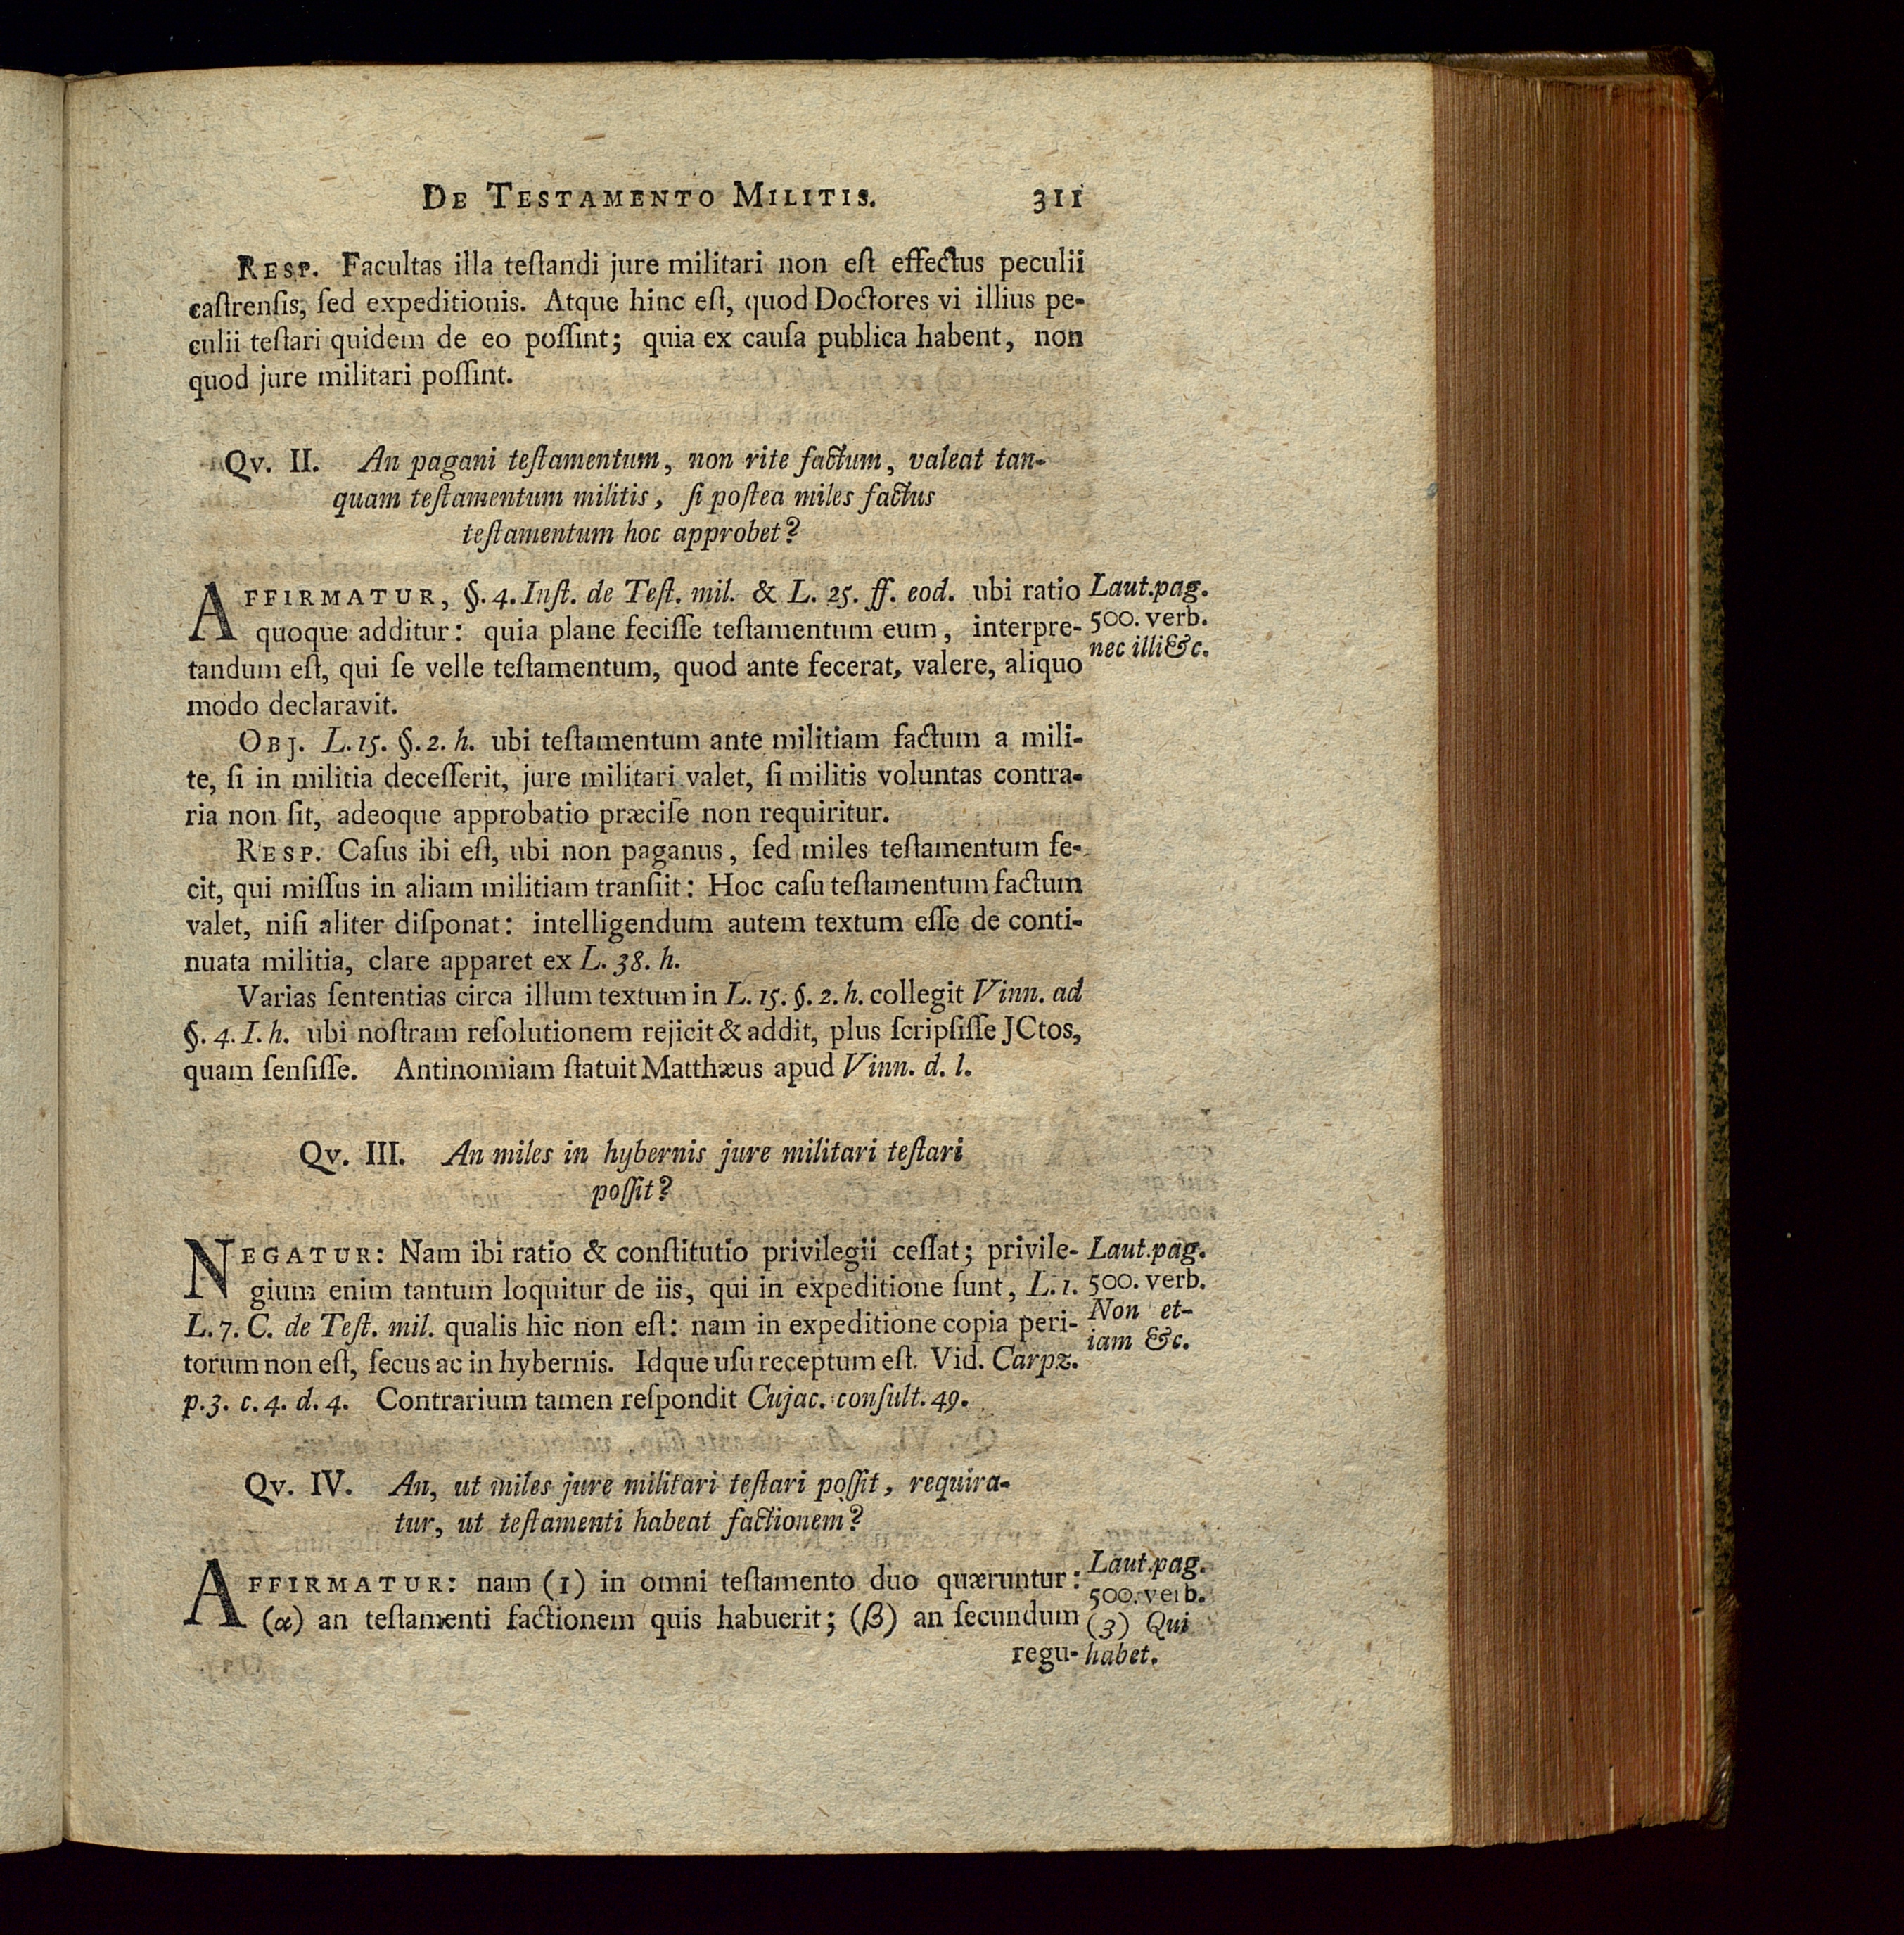 DE TESTAMENTO MILITIS. 311
RESP. Facultas illa teſtandi jure militari non eſt effectus peculii
caſtrenſis, ſed expeditionis. Atque hinc eſt, quod Doctores vi illius pe-
culii teſtari quidem de eo poſſint; quia ex cauſa publica habent, non
quod jure militari poſſint.
Qv. II. An pagani teſtamentum, non rite factum, valeat tan-
quam teſtamentum militis, ſi poſtea miles factus
teſtamentum hoc approbet?
AFFIRMATUR, §. 4. Inſt. de Teſt. mil. & L. 25. ff. eod. ubi ratio
quoque additur: quia plane feciſſe teſtamentum eum, interpre-
tandum eſt, qui ſe velle teſtamentum, quod ante fecerat, valere, aliquo
modo declaravit.
Laut.pag.
500. verb.
nec illi &c.
OBJ. L. 15. §. 2. h. ubi teſtamentum ante militiam factum a mili-
te, ſi in militia deceſſerit, jure militari valet, ſi militis voluntas contra-
ria non ſit, adeoque approbatio præciſe non requiritur.
RESP. Caſus ibi eſt, ubi non paganus, ſed miles teſtamentum fe-
cit, qui miſſus in aliam militiam tranſiit: Hoc caſu teſtamentum factum
valet, niſi aliter diſponat: intelligendum autem textum eſſe de conti-
nuata militia, clare apparet ex L. 38. h.
Varias ſententias circa illum textum in L. 15. §. 2. h. collegit Vinn. ad
§. 4. I. h. ubi noſtram reſolutionem rejicit & addit, plus ſcripſiſſe JCtos,
quam ſenſiſſe. Antinomiam ſtatuit Matthæus apud Vinn. d. l.
Qv. III. An miles in hybernis jure militari teſtari
poſſit?
NEGATUR: Nam ibi ratio & conſtitutio privilegii ceſſat; privile-
gium enim tantum loquitur de iis, qui in expeditione ſunt, L. 1.
L. 7. C. de Teſt. mil. qualis hic non eſt: nam in expeditione copia peri-
torum non eſt, ſecus ac in hybernis. Idque uſu receptum eſt. Vid. Carpz.
p. 3. c. 4. d. 4. Contrarium tamen reſpondit Cujac. conſult. 49.
Laut.pag.
500. verb.
Non et-
iam &c.
Qv. IV. An, ut miles jure militari teſtari poſſit, requira-
tur, ut teſtamenti habeat factionem?
AFFIRMATUR: nam (1) in omni teſtamento duo quæruntur:
(α) an teſtamenti factionem quis habuerit; (β) an ſecundum
regu-
Laut.pag.
500. verb.
(3) Qui
habet.